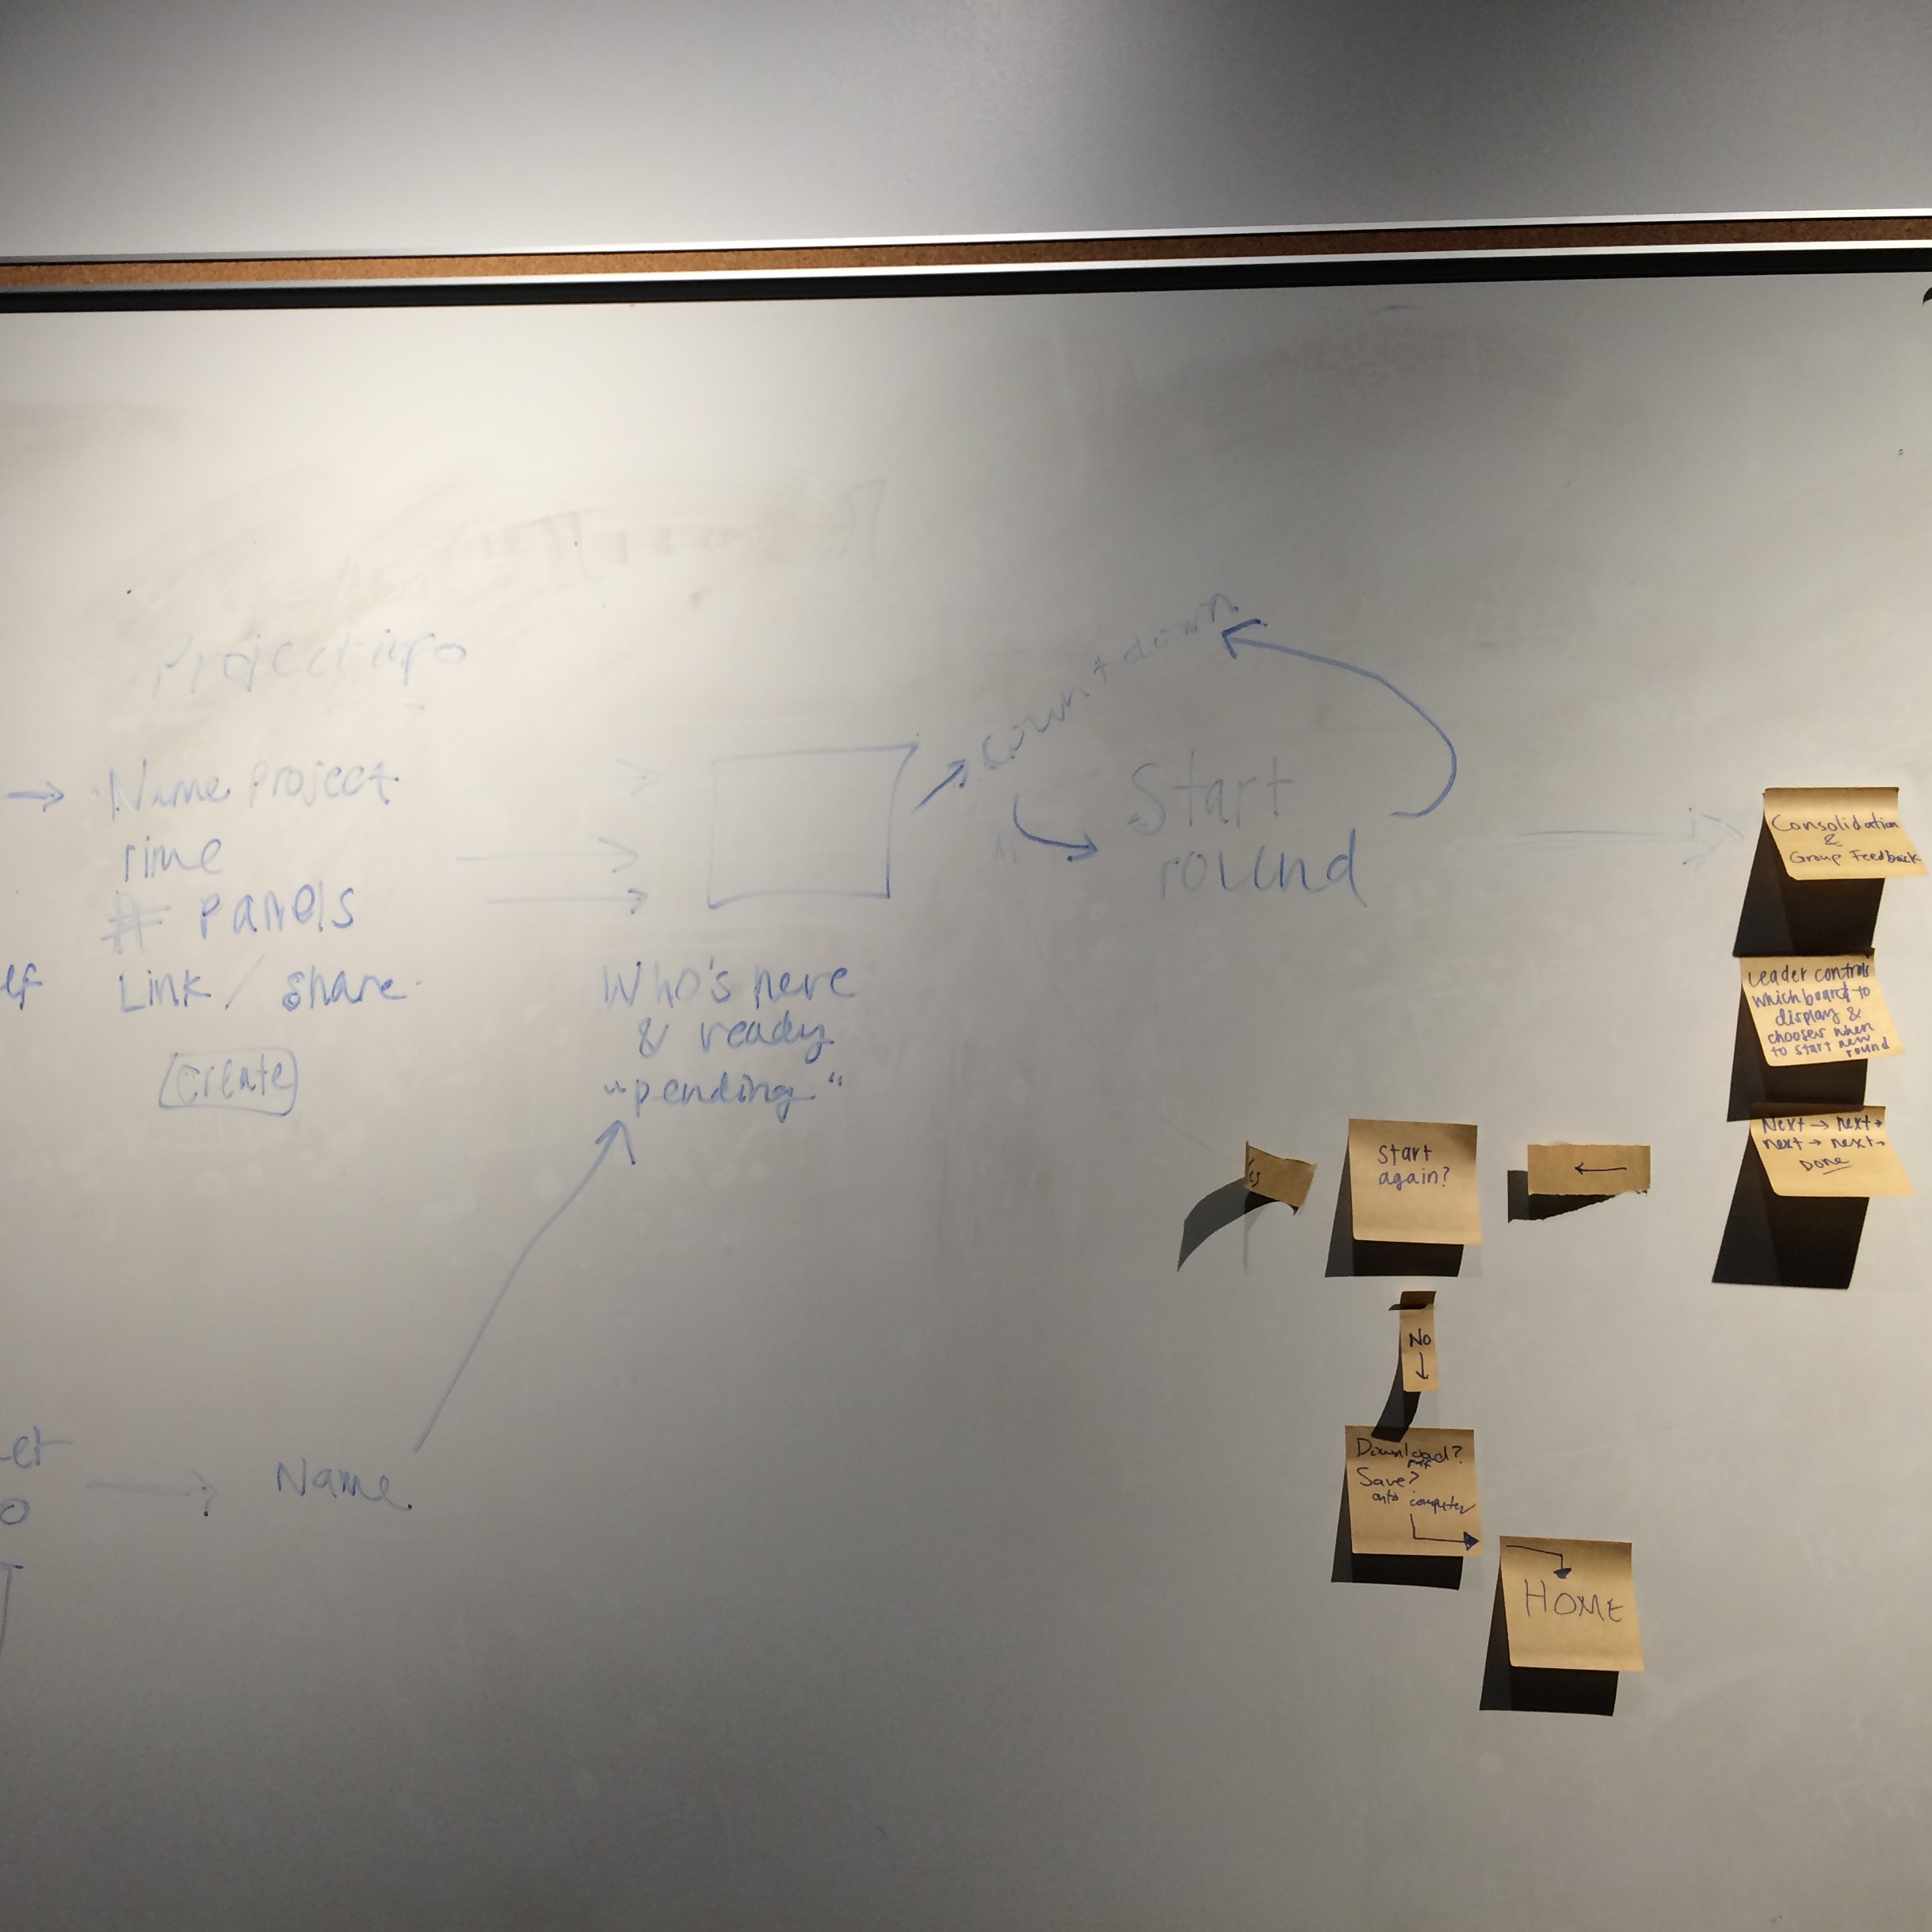 Project info
Name project
Time
# panels
Link / share
create
Who's here
& ready
"pending"
Name
count down
Start
round
Consolidation
&
Group Feedback
Leader controls
which board to
display &
chooses when
to start new
round
Next → next →
next → next →
Done
←
Start
again?
No
↓
Download?
Save?
onto computer
HOME